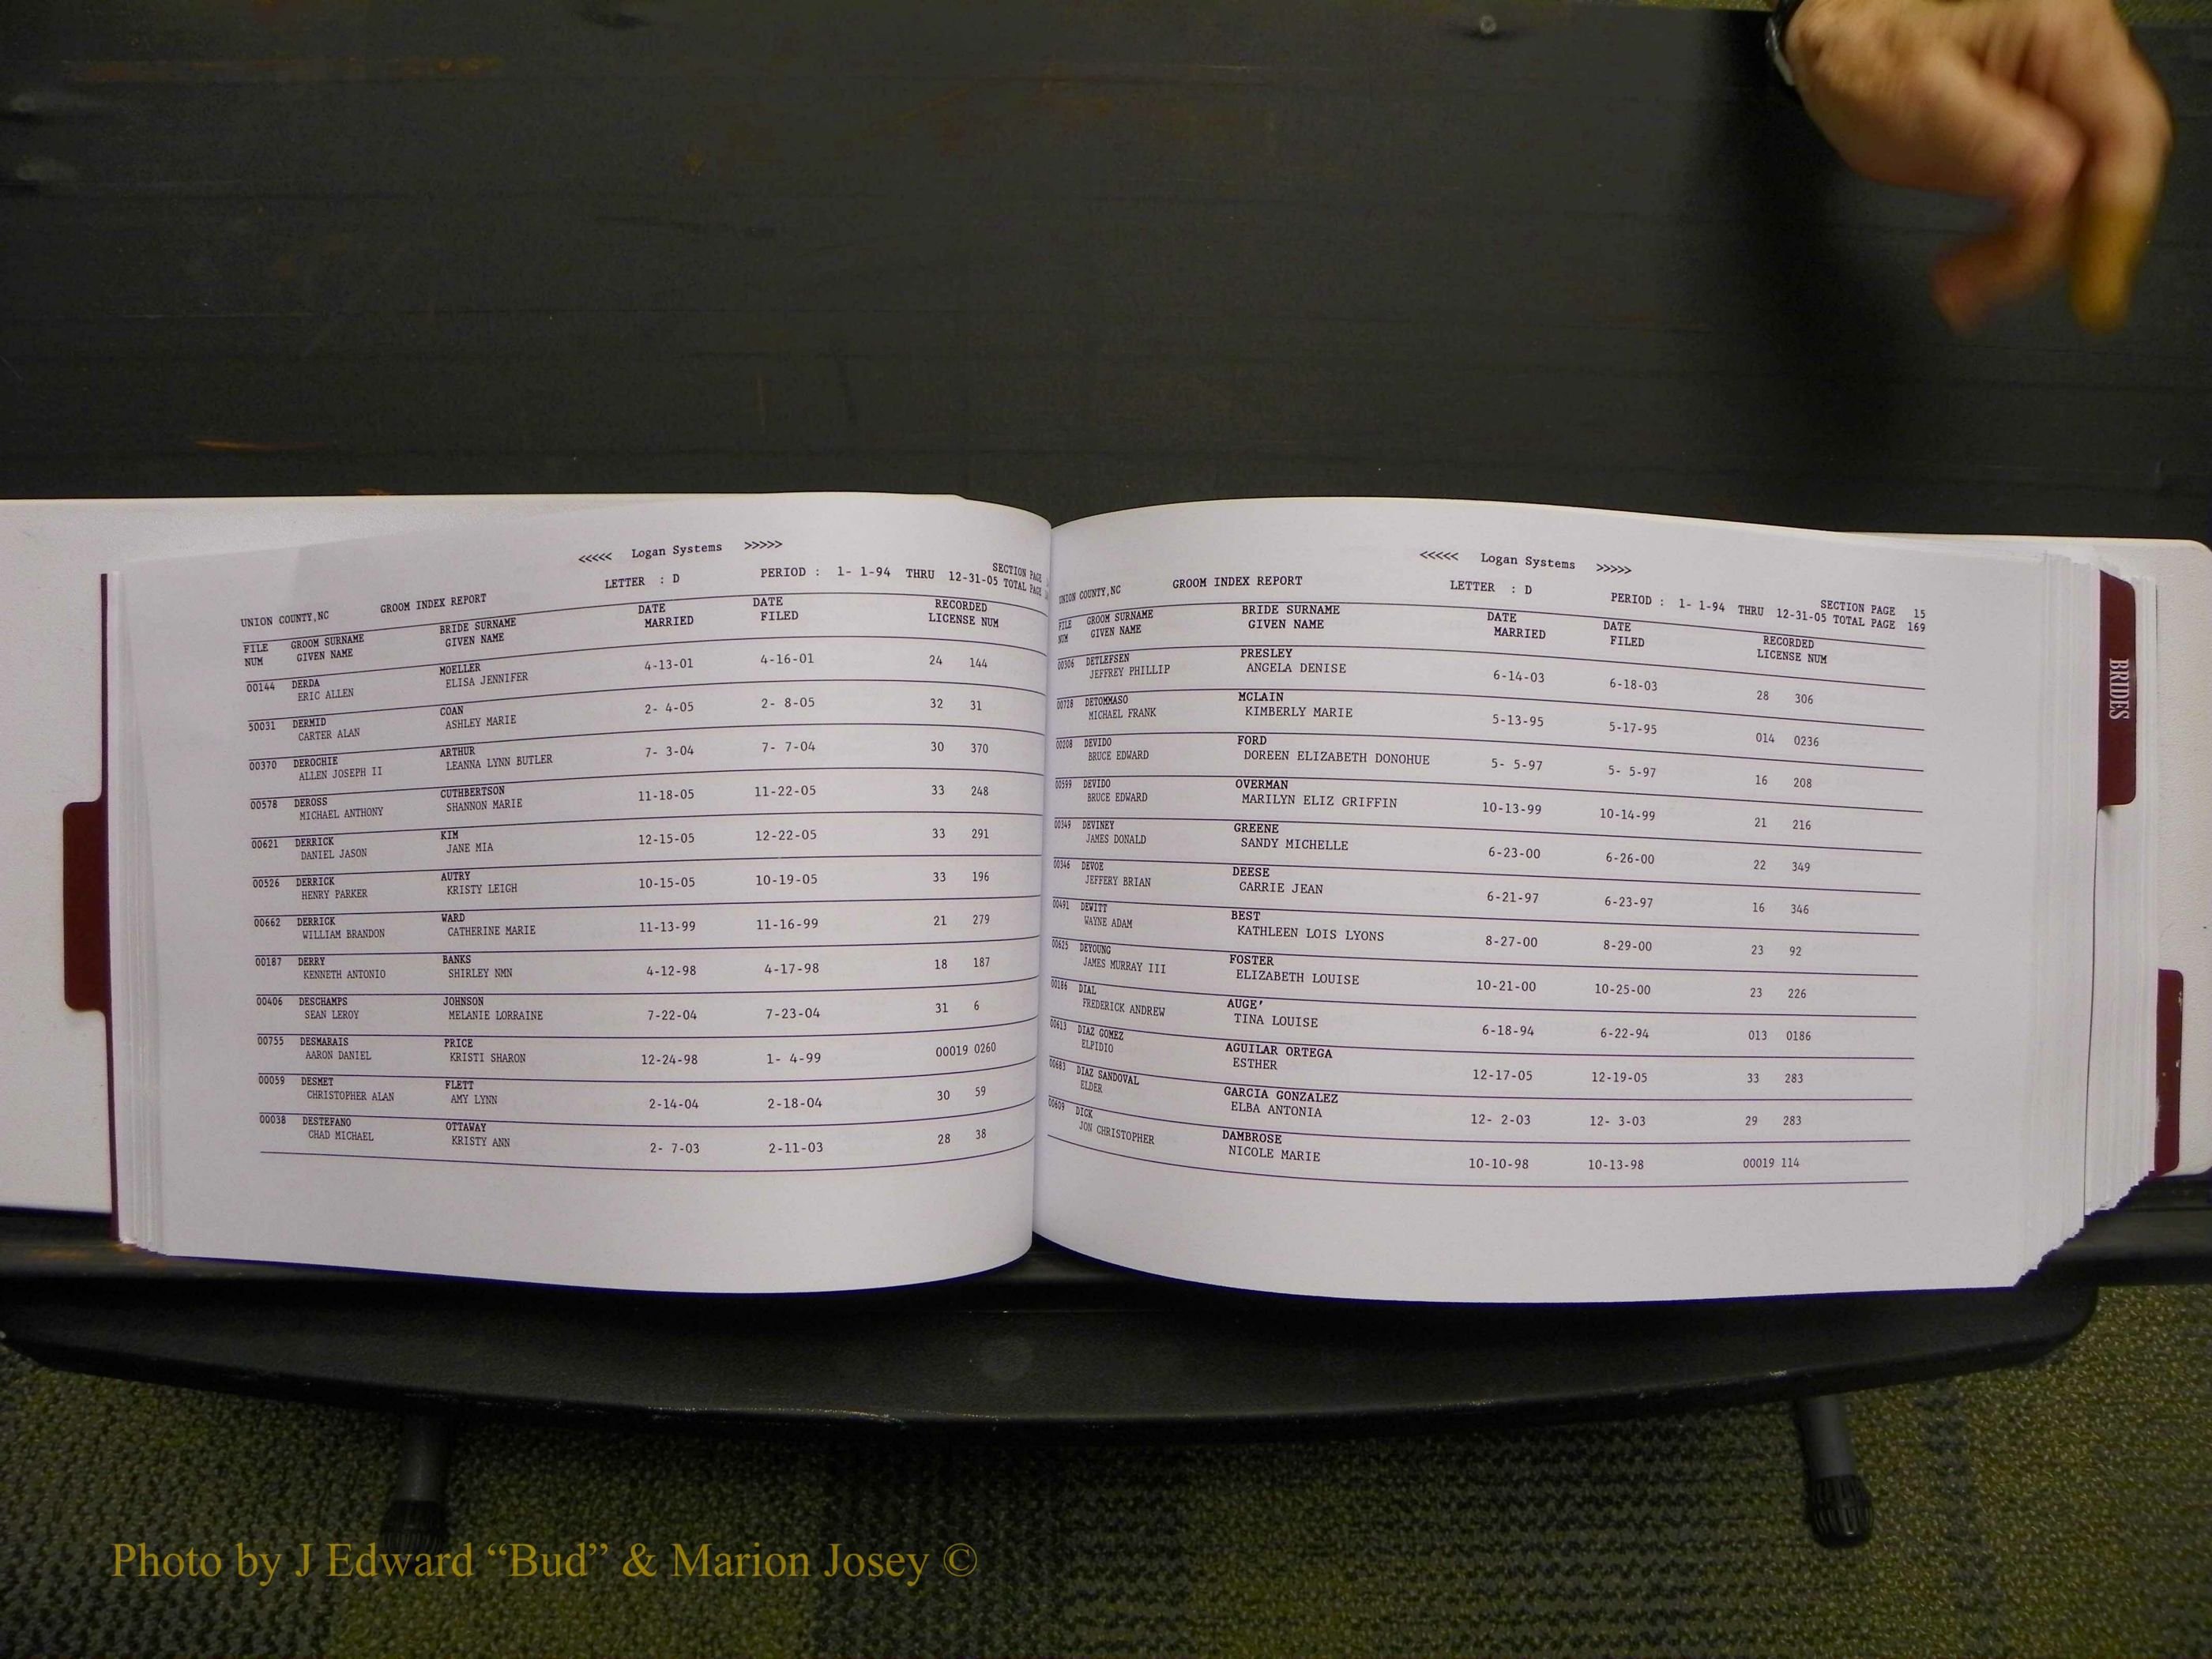 <<<<< Logan Systems >>>>>
UNION COUNTY,NC GROOM INDEX REPORT LETTER : D PERIOD : 1- 1-94 THRU 12-31-05 SECTION PAGE
TOTAL PAGE
FILE GROOM SURNAME BRIDE SURNAME DATE DATE RECORDED
NUM GIVEN NAME GIVEN NAME MARRIED FILED LICENSE NUM
00144 DERDA MOELLER 4-13-01 4-16-01 24 144
ERIC ALLEN ELISA JENNIFER
50031 DERMID COAN 2- 4-05 2- 8-05 32 31
CARTER ALAN ASHLEY MARIE
00370 DEROCHIE ARTHUR 7- 3-04 7- 7-04 30 370
ALLEN JOSEPH II LEANNA LYNN BUTLER
00578 DEROSS CUTHBERTSON 11-18-05 11-22-05 33 248
MICHAEL ANTHONY SHANNON MARIE
00621 DERRICK KIM 12-15-05 12-22-05 33 291
DANIEL JASON JANE MIA
00526 DERRICK AUTRY 10-15-05 10-19-05 33 196
HENRY PARKER KRISTY LEIGH
00662 DERRICK WARD 11-13-99 11-16-99 21 279
WILLIAM BRANDON CATHERINE MARIE
00187 DERRY BANKS 4-12-98 4-17-98 18 187
KENNETH ANTONIO SHIRLEY NMN
00406 DESCHAMPS JOHNSON 7-22-04 7-23-04 31 6
SEAN LEROY MELANIE LORRAINE
00755 DESMARAIS PRICE 12-24-98 1- 4-99 00019 0260
AARON DANIEL KRISTI SHARON
00059 DESMET FLETT 2-14-04 2-18-04 30 59
CHRISTOPHER ALAN AMY LYNN
00038 DESTEFANO OTTAWAY 2- 7-03 2-11-03 28 38
CHAD MICHAEL KRISTY ANN
<<<<< Logan Systems >>>>>
UNION COUNTY,NC GROOM INDEX REPORT LETTER : D PERIOD : 1- 1-94 THRU 12-31-05 SECTION PAGE 15
TOTAL PAGE 169
FILE GROOM SURNAME BRIDE SURNAME DATE DATE RECORDED
NUM GIVEN NAME GIVEN NAME MARRIED FILED LICENSE NUM
00306 DETLEFSEN PRESLEY 6-14-03 6-18-03 28 306
JEFFREY PHILLIP ANGELA DENISE
00728 DETOMMASO MCLAIN 5-13-95 5-17-95 014 0236
MICHAEL FRANK KIMBERLY MARIE
00208 DEVIDO FORD 5- 5-97 5- 5-97 16 208
BRUCE EDWARD DOREEN ELIZABETH DONOHUE
00599 DEVIDO OVERMAN 10-13-99 10-14-99 21 216
BRUCE EDWARD MARILYN ELIZ GRIFFIN
00349 DEVINEY GREENE 6-23-00 6-26-00 22 349
JAMES DONALD SANDY MICHELLE
00346 DEVOE DEESE 6-21-97 6-23-97 16 346
JEFFERY BRIAN CARRIE JEAN
00491 DEWITT BEST 8-27-00 8-29-00 23 92
WAYNE ADAM KATHLEEN LOIS LYONS
00625 DEYOUNG FOSTER 10-21-00 10-25-00 23 226
JAMES MURRAY III ELIZABETH LOUISE
00186 DIAL AUGE' 6-18-94 6-22-94 013 0186
FREDERICK ANDREW TINA LOUISE
00613 DIAZ GOMEZ AGUILAR ORTEGA 12-17-05 12-19-05 33 283
ELPIDIO ESTHER
00683 DIAZ SANDOVAL GARCIA GONZALEZ 12- 2-03 12- 3-03 29 283
ELDER ELBA ANTONIA
00609 DICK DAMBROSE 10-10-98 10-13-98 00019 114
JON CHRISTOPHER NICOLE MARIE
BRIDES
Photo by J Edward “Bud” & Marion Josey ©